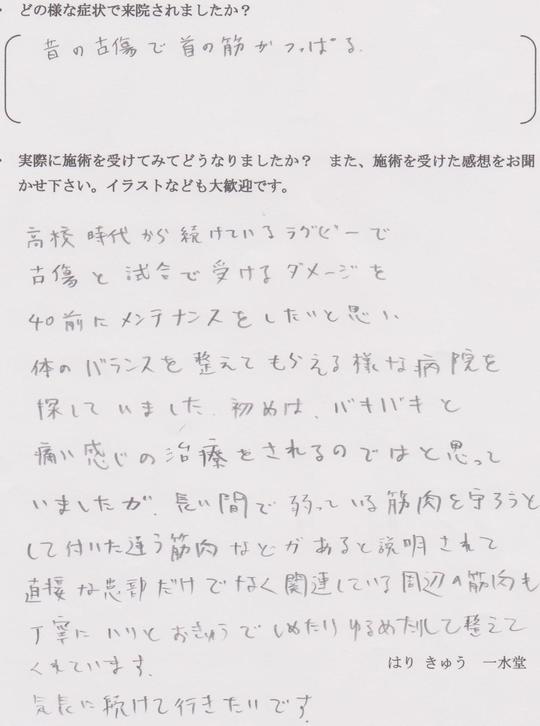 ・ どの様な症状で来院されましたか？
昔の古傷で首の筋がつっぱる.
・ 実際に施術を受けてみてどうなりましたか？　また、施術を受けた感想をお聞
かせ下さい。イラストなども大歓迎です。
高校時代から続けているラグビーで
古傷と試合で受けるダメージを
40前にメンテナンスをしたいと思い、
体のバランスを整えてもらえる様な病院を
探していました. 初めは、バキバキと
痛い感じの治療をされるのではと思って
いましたが、長い間で弱っている筋肉を守ろうと
して付いた違う筋肉などがあると説明されて
直接な患部だけでなく関連している周辺の筋肉も
丁寧にハリとおきゅうでしめたりゆるめたりして整えて
くれています.
はり きゅう　一水堂
気長に続けて行きたいです.